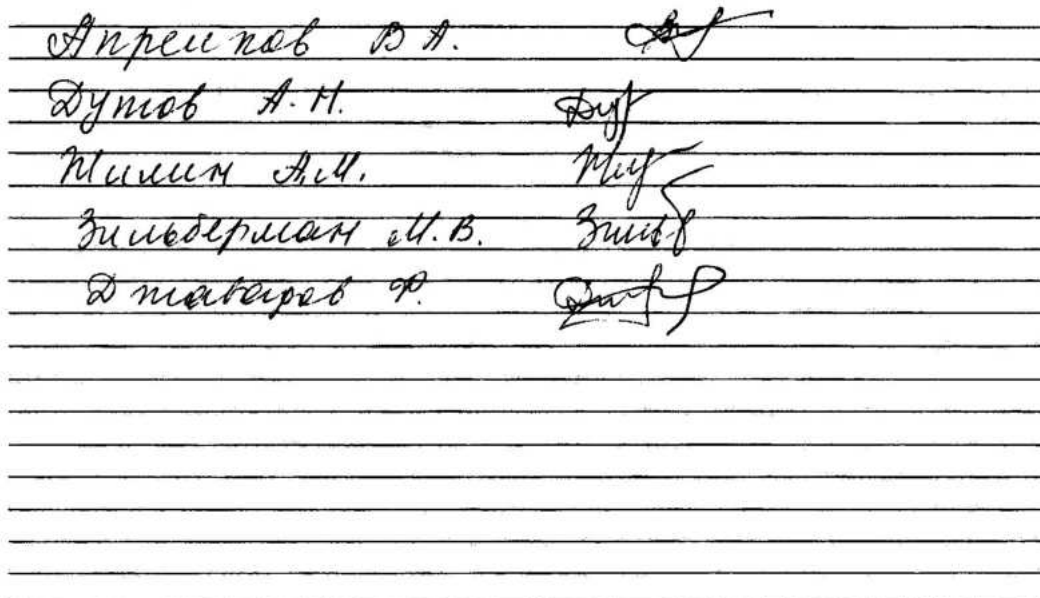 Апреипов В А.
Дутов А.Н.
Жилин А.М.
Зильберман М.В.
Джаваров Ф.